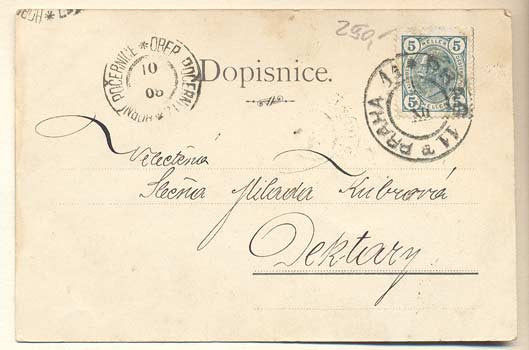 250,
HORNÍ POČERNICE * OBER POČERNITZ
10
05
Dopisnice.
5 HELLER 5
5 5
PRAHA 11 * PRAG 11
XII
Velectěná
Slečna Milada Kubrová
Dektary